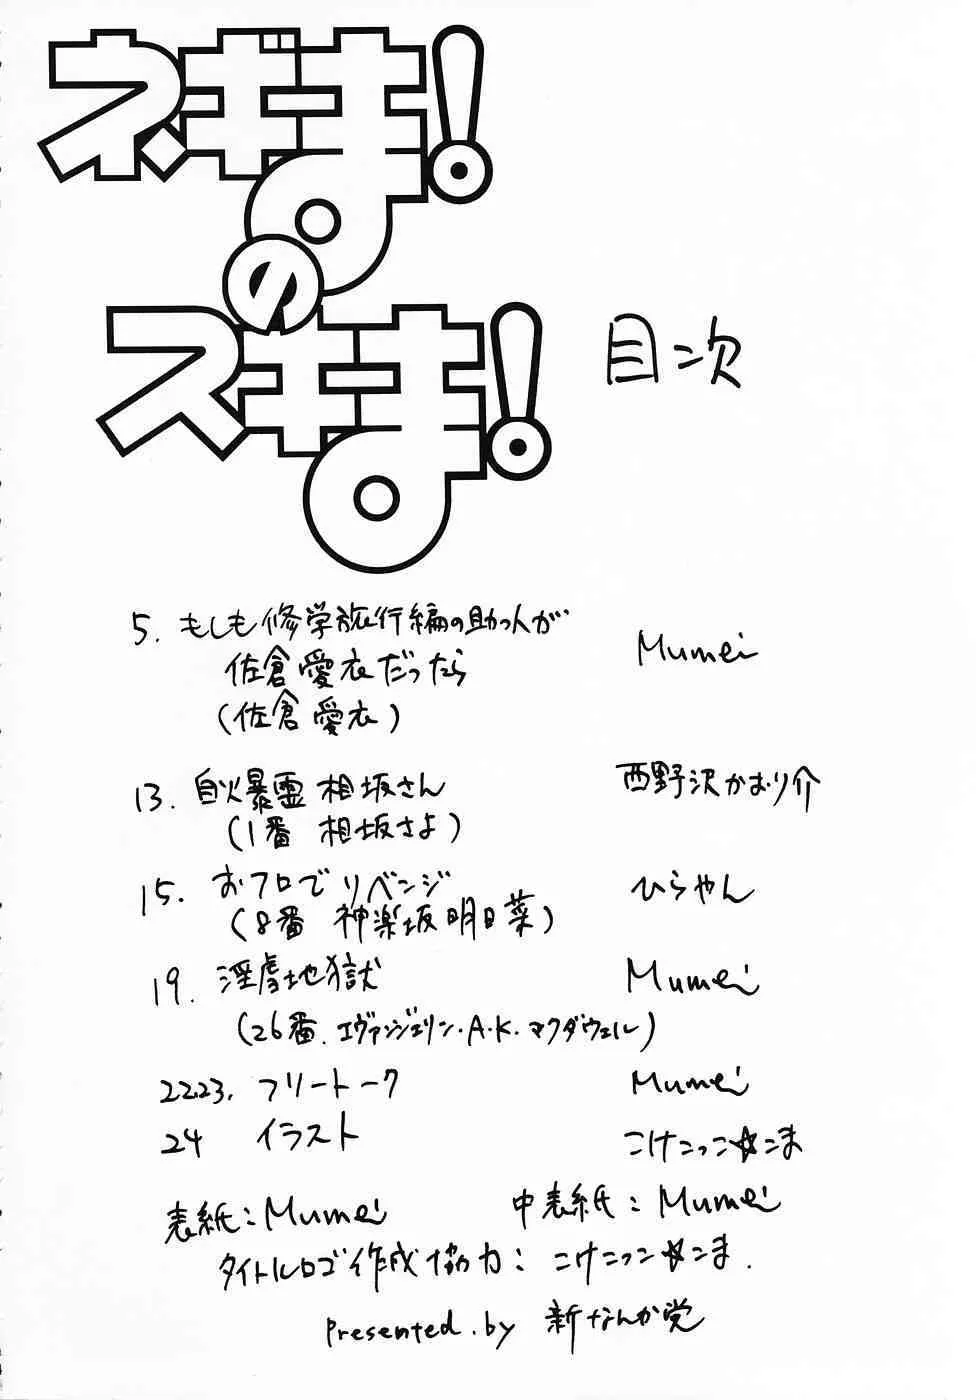 ネギま!
の
スキま!
目次
5. もしも修学旅行編の助っ人が
佐倉愛衣だったら Mumei
(佐倉愛衣)
13. 自火暴霊 相坂さん 西野沢かおり介
(1番 相坂さよ)
15. おフロでリベンジ ひらやん
(8番 神楽坂明日菜)
19. 淫虐地獄 Mumei
(26番. エヴァンジェリン・A・K・マクダウェル)
22.23. フリートーク Mumei
24 イラスト こけこっこ☆こま
表紙:Mumei 中表紙:Mumei
タイトルロゴ作成協力: こけこっこ☆こま.
Presented.by 新なんか党